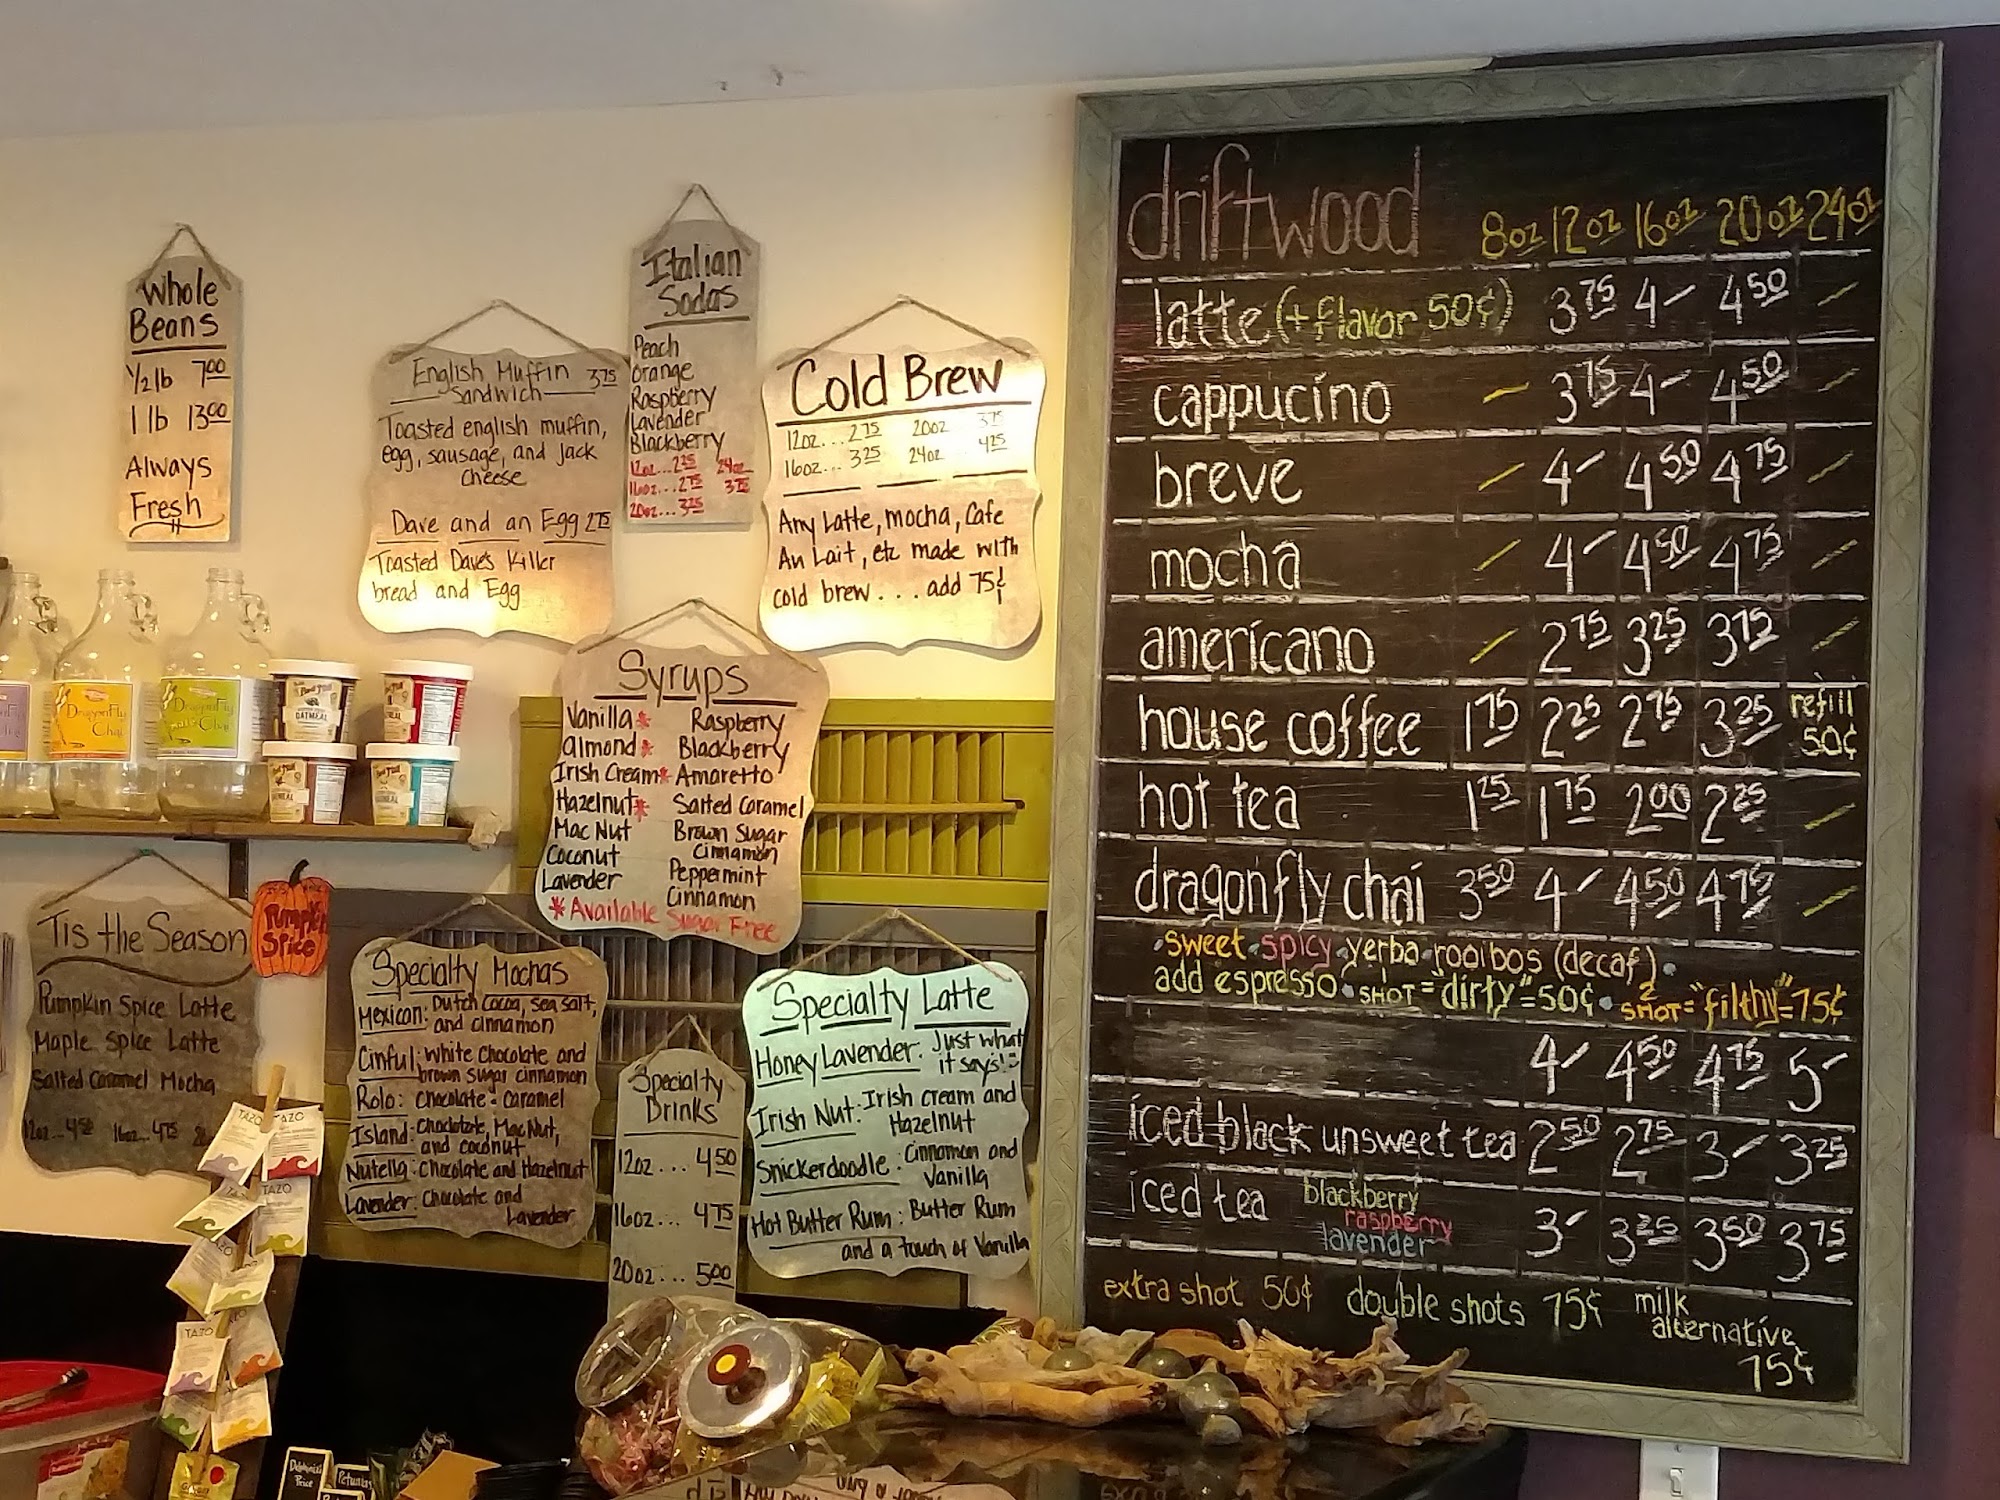 Whole
Beans
1/2 lb 7.00
1 lb 13.00
Always
Fresh
English Muffin 3.75
Sandwich
Toasted english muffin,
egg, sausage, and jack
cheese
Dave and an Egg 2.75
Toasted Dave's Killer
bread and Egg
Italian
Sodas
Peach
Orange
Raspberry
Lavender
Blackberry
12oz...2.25 24oz
16oz...2.75 3.75
20oz...3.25
Cold Brew
12oz...2.75 20oz 3.75
16oz...3.25 24oz ...4.25
Any Latte, mocha, Cafe
Au Lait, etc made with
cold brew...add 75¢
Syrups
Vanilla* Raspberry
Almond* Blackberry
Irish Cream* Amaretto
Hazelnut* Salted Caramel
Mac Nut Brown Sugar
Coconut Cinnamon
Lavender Peppermint
Cinnamon
*Available Sugar Free
DragonFly
Chai
DragonFly
Chai
OATMEAL
Tis the Season
Pumpkin Spice
Pumpkin Spice Latte
Maple Spice Latte
Salted Caramel Mocha
12oz...4.50 16oz...4.75
Specialty Mochas
Mexican: Dutch cocoa, sea salt,
and cinnamon
Cinful: White chocolate and
brown sugar cinnamon
Rolo: Chocolate & Caramel
Island: Chocolate, Mac Nut,
and coconut
Nutella: Chocolate and Hazelnut
Lavender: Chocolate and
Lavender
Specialty
Drinks
12oz...4.50
16oz...4.75
20oz...5.00
Specialty Latte
Honey Lavender: Just what
it says!
Irish Nut: Irish cream and
Hazelnut
Snickerdoodle: Cinnamon and
Vanilla
Hot Butter Rum: Butter Rum
and a touch of Vanilla
TAZO
TAZO
TAZO
TAZO
TAZO
driftwood 8oz 12oz 16oz 20oz 24oz
latte (+flavor 50¢) 3.75 4- 4.50 -
cappucino - 3.75 4- 4.50 -
breve - 4- 4.50 4.75 -
mocha - 4- 4.50 4.75 -
americano - 2.75 3.25 3.75 -
house coffee 1.75 2.25 2.75 3.25 refill 50¢
hot tea 1.25 1.75 2.00 2.25 -
dragonfly chai 3.50 4- 4.50 4.75 -
•sweet •spicy •yerba •rooibos (decaf) •
add espresso • SHOT="dirty"=50¢ • 2 SHOT="filthy"=75¢
4- 4.50 4.75 5-
iced black unsweet tea 2.50 2.75 3- 3.25
iced tea blackberry raspberry lavender 3- 3.25 3.50 3.75
extra shot 50¢ double shots 75¢ milk alternative 75¢